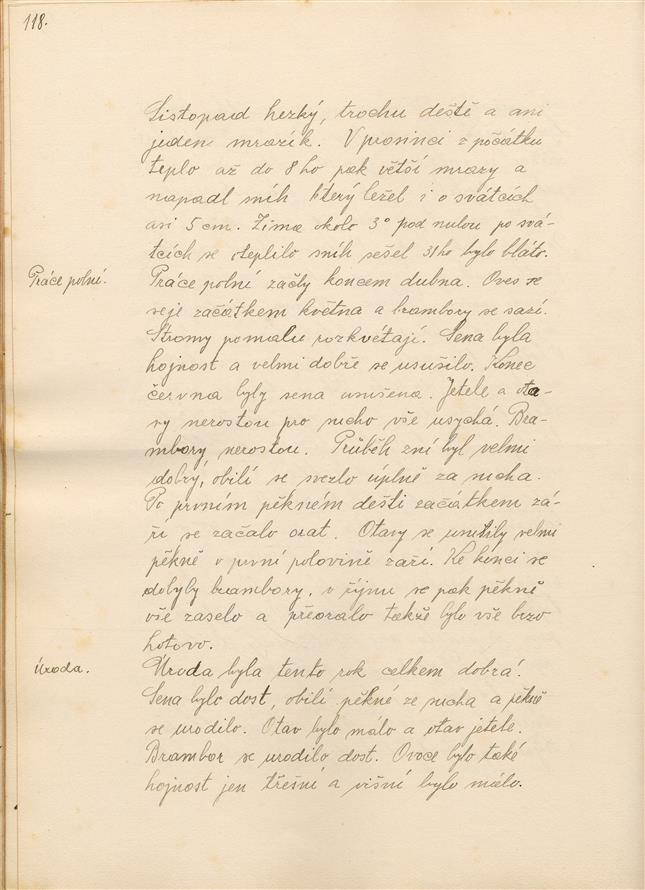 118.
Listopad hezký, trochu deště a ani
jeden mrazík. V prosinci z počátku
teplo až do 8ho pak větší mrazy a
napadl sníh který ležel i o svátcích
asi 5 cm. Zima okolo 3° pod nulou po svá-
tcích se oteplilo sníh sešel 31ho bylo bláto.
Práce polní.
Práce polní začly koncem dubna. Oves se
seje začátkem května a brambory se sazí.
Stromy pomalu rozkvétají. Sena byla
hojnost a velmi dobře se usušilo. Konec
června byly sena usušena. Jetele a ota-
vy nerostou pro sucho vše usychá. Bra-
mbory nerostou. Průběh žní byl velmi
dobrý, obilí se svezlo úplně za sucha.
Po prvním pěkném dešti začátkem zá-
ří se začalo orat. Otavy se usušily velmi
pěkně v první polovině září. Ke konci se
dobyly brambory, v říjnu se pak pěkně
vše zaselo a přeoralo takže bylo vše brzo
hotovo.
Úroda.
Úroda byla tento rok celkem dobrá.
Sena bylo dost, obilí pěkné ze sucha a pěkně
se urodilo. Otav bylo málo a otav jetele.
Brambor se urodilo dost. Ovoce bylo také
hojnost jen třešní a višní bylo málo.